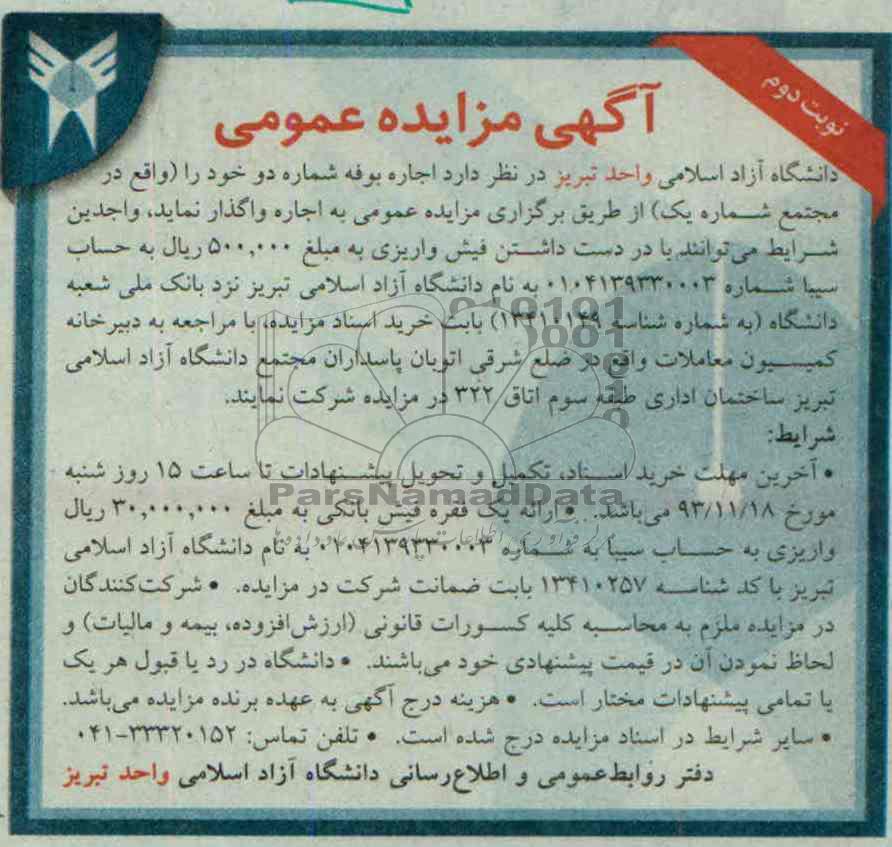 نوبت دوم
آگهی مزایده عمومی
دانشگاه آزاد اسلامی واحد تبریز در نظر دارد اجاره بوفه شماره دو خود را (واقع در
مجتمع شماره یک) از طریق برگزاری مزایده عمومی به اجاره واگذار نماید، واجدین
شرایط می‌توانند با در دست داشتن فیش واریزی به مبلغ ۵۰۰,۰۰۰ ریال به حساب
سیبا شماره ۰۱۰۴۱۳۹۳۳۰۰۰۳ به نام دانشگاه آزاد اسلامی تبریز نزد بانک ملی شعبه
دانشگاه (به شماره شناسه ۱۳۴۱۰۱۴۹) بابت خرید اسناد مزایده، با مراجعه به دبیرخانه
کمیسیون معاملات واقع در ضلع شرقی اتوبان پاسداران مجتمع دانشگاه آزاد اسلامی
تبریز ساختمان اداری طبقه سوم اتاق ۳۲۲ در مزایده شرکت نمایند.
شرایط:
• آخرین مهلت خرید اسناد، تکمیل و تحویل پیشنهادات تا ساعت ۱۵ روز شنبه
ParsNamadData
مورخ ۹۳/۱۱/۱۸ می‌باشد. • ارائه یک فقره فیش بانکی به مبلغ ۳۰,۰۰۰,۰۰۰ ریال
واریزی به حساب سیبا به شماره ۰۲۰۴۱۳۹۳۳۰۰۰۳ به نام دانشگاه آزاد اسلامی
تبریز با کد شناسه ۱۳۴۱۰۲۵۷ بابت ضمانت شرکت در مزایده. • شرکت‌کنندگان
در مزایده ملزم به محاسبه کلیه کسورات قانونی (ارزش‌افزوده، بیمه و مالیات) و
لحاظ نمودن آن در قیمت پیشنهادی خود می‌باشند. • دانشگاه در رد یا قبول هر یک
یا تمامی پیشنهادات مختار است. • هزینه درج آگهی به عهده برنده مزایده می‌باشد.
• سایر شرایط در اسناد مزایده درج شده است. • تلفن تماس: ۳۳۳۲۰۱۵۲-۰۴۱
دفتر روابط‌عمومی و اطلاع‌رسانی دانشگاه آزاد اسلامی واحد تبریز